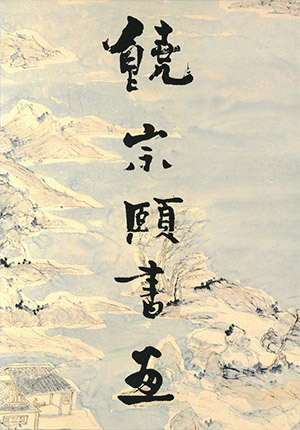 饒宗頤書畫